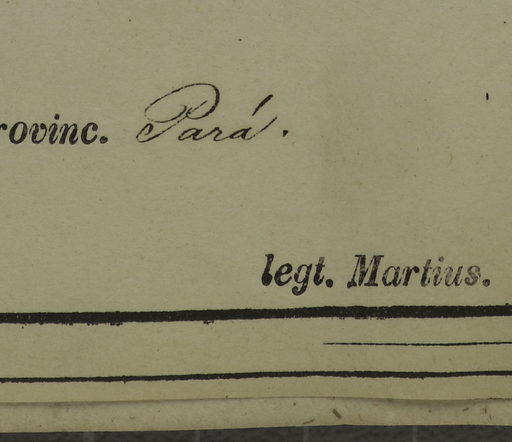 rovinc. Pará.
legt. Martius.